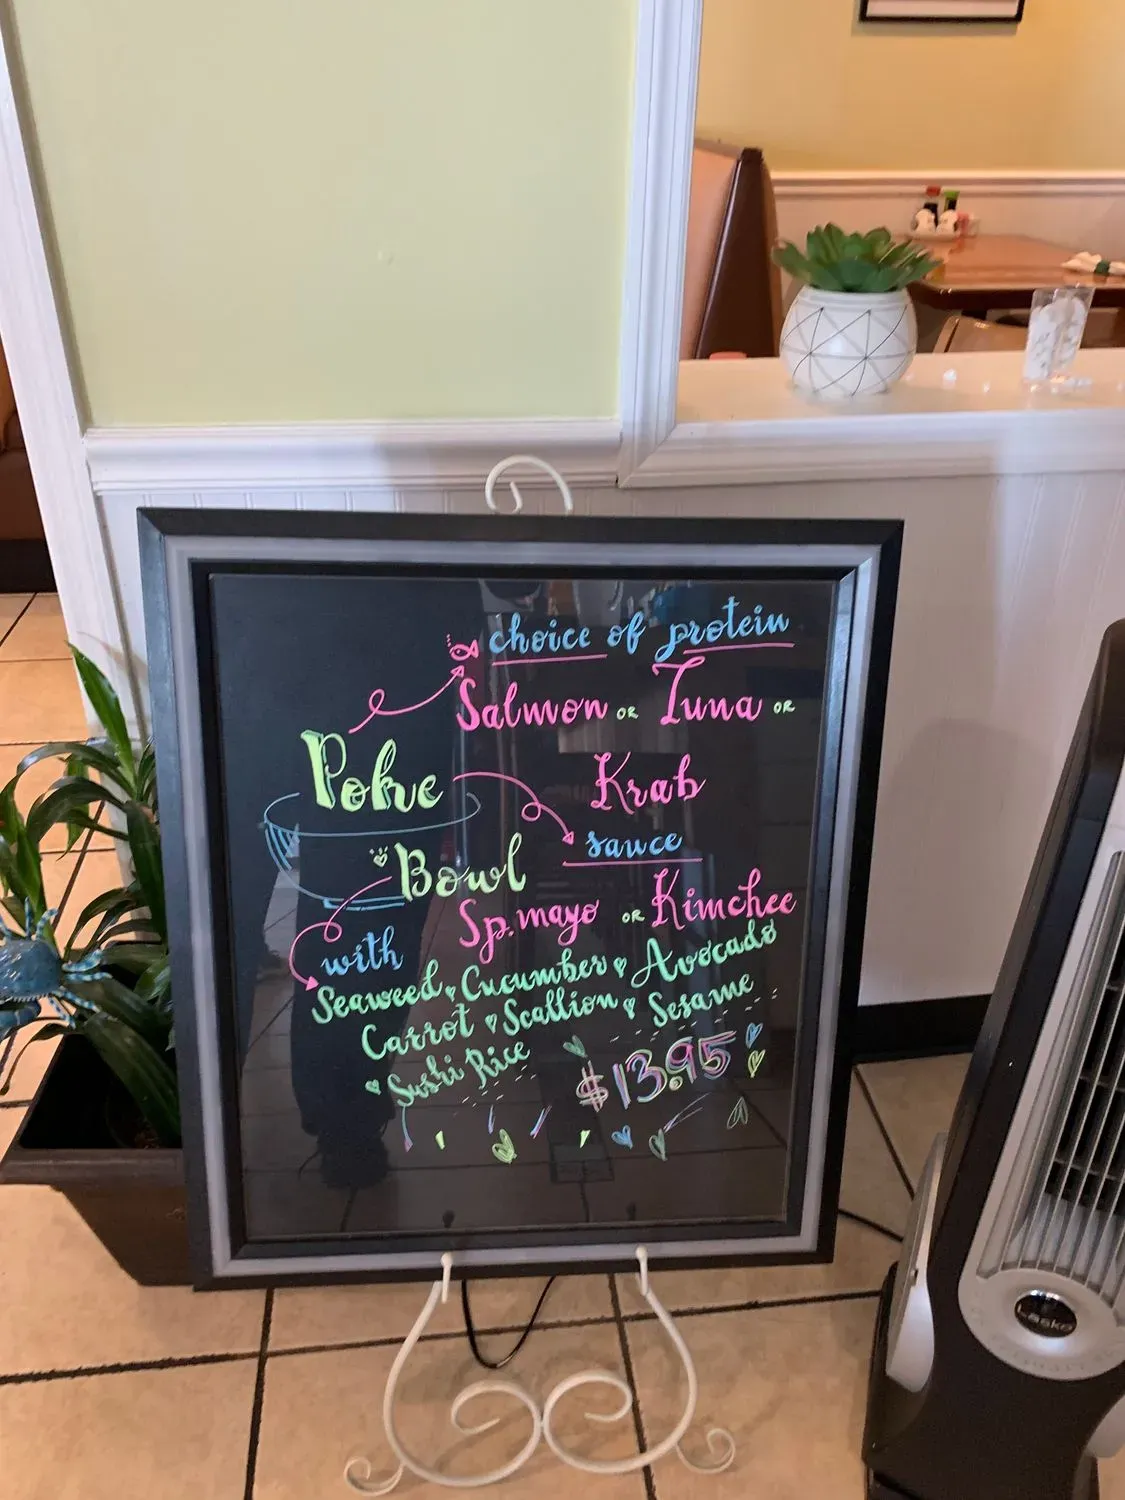 choice of protein
Salmon OR Tuna OR
Krab
Poke
Bowl
sauce
Sp.mayo OR Kimchee
with
Seaweed Cucumber Avocado
Carrot Scallion Sesame
Sushi Rice
$13.95
Lasko